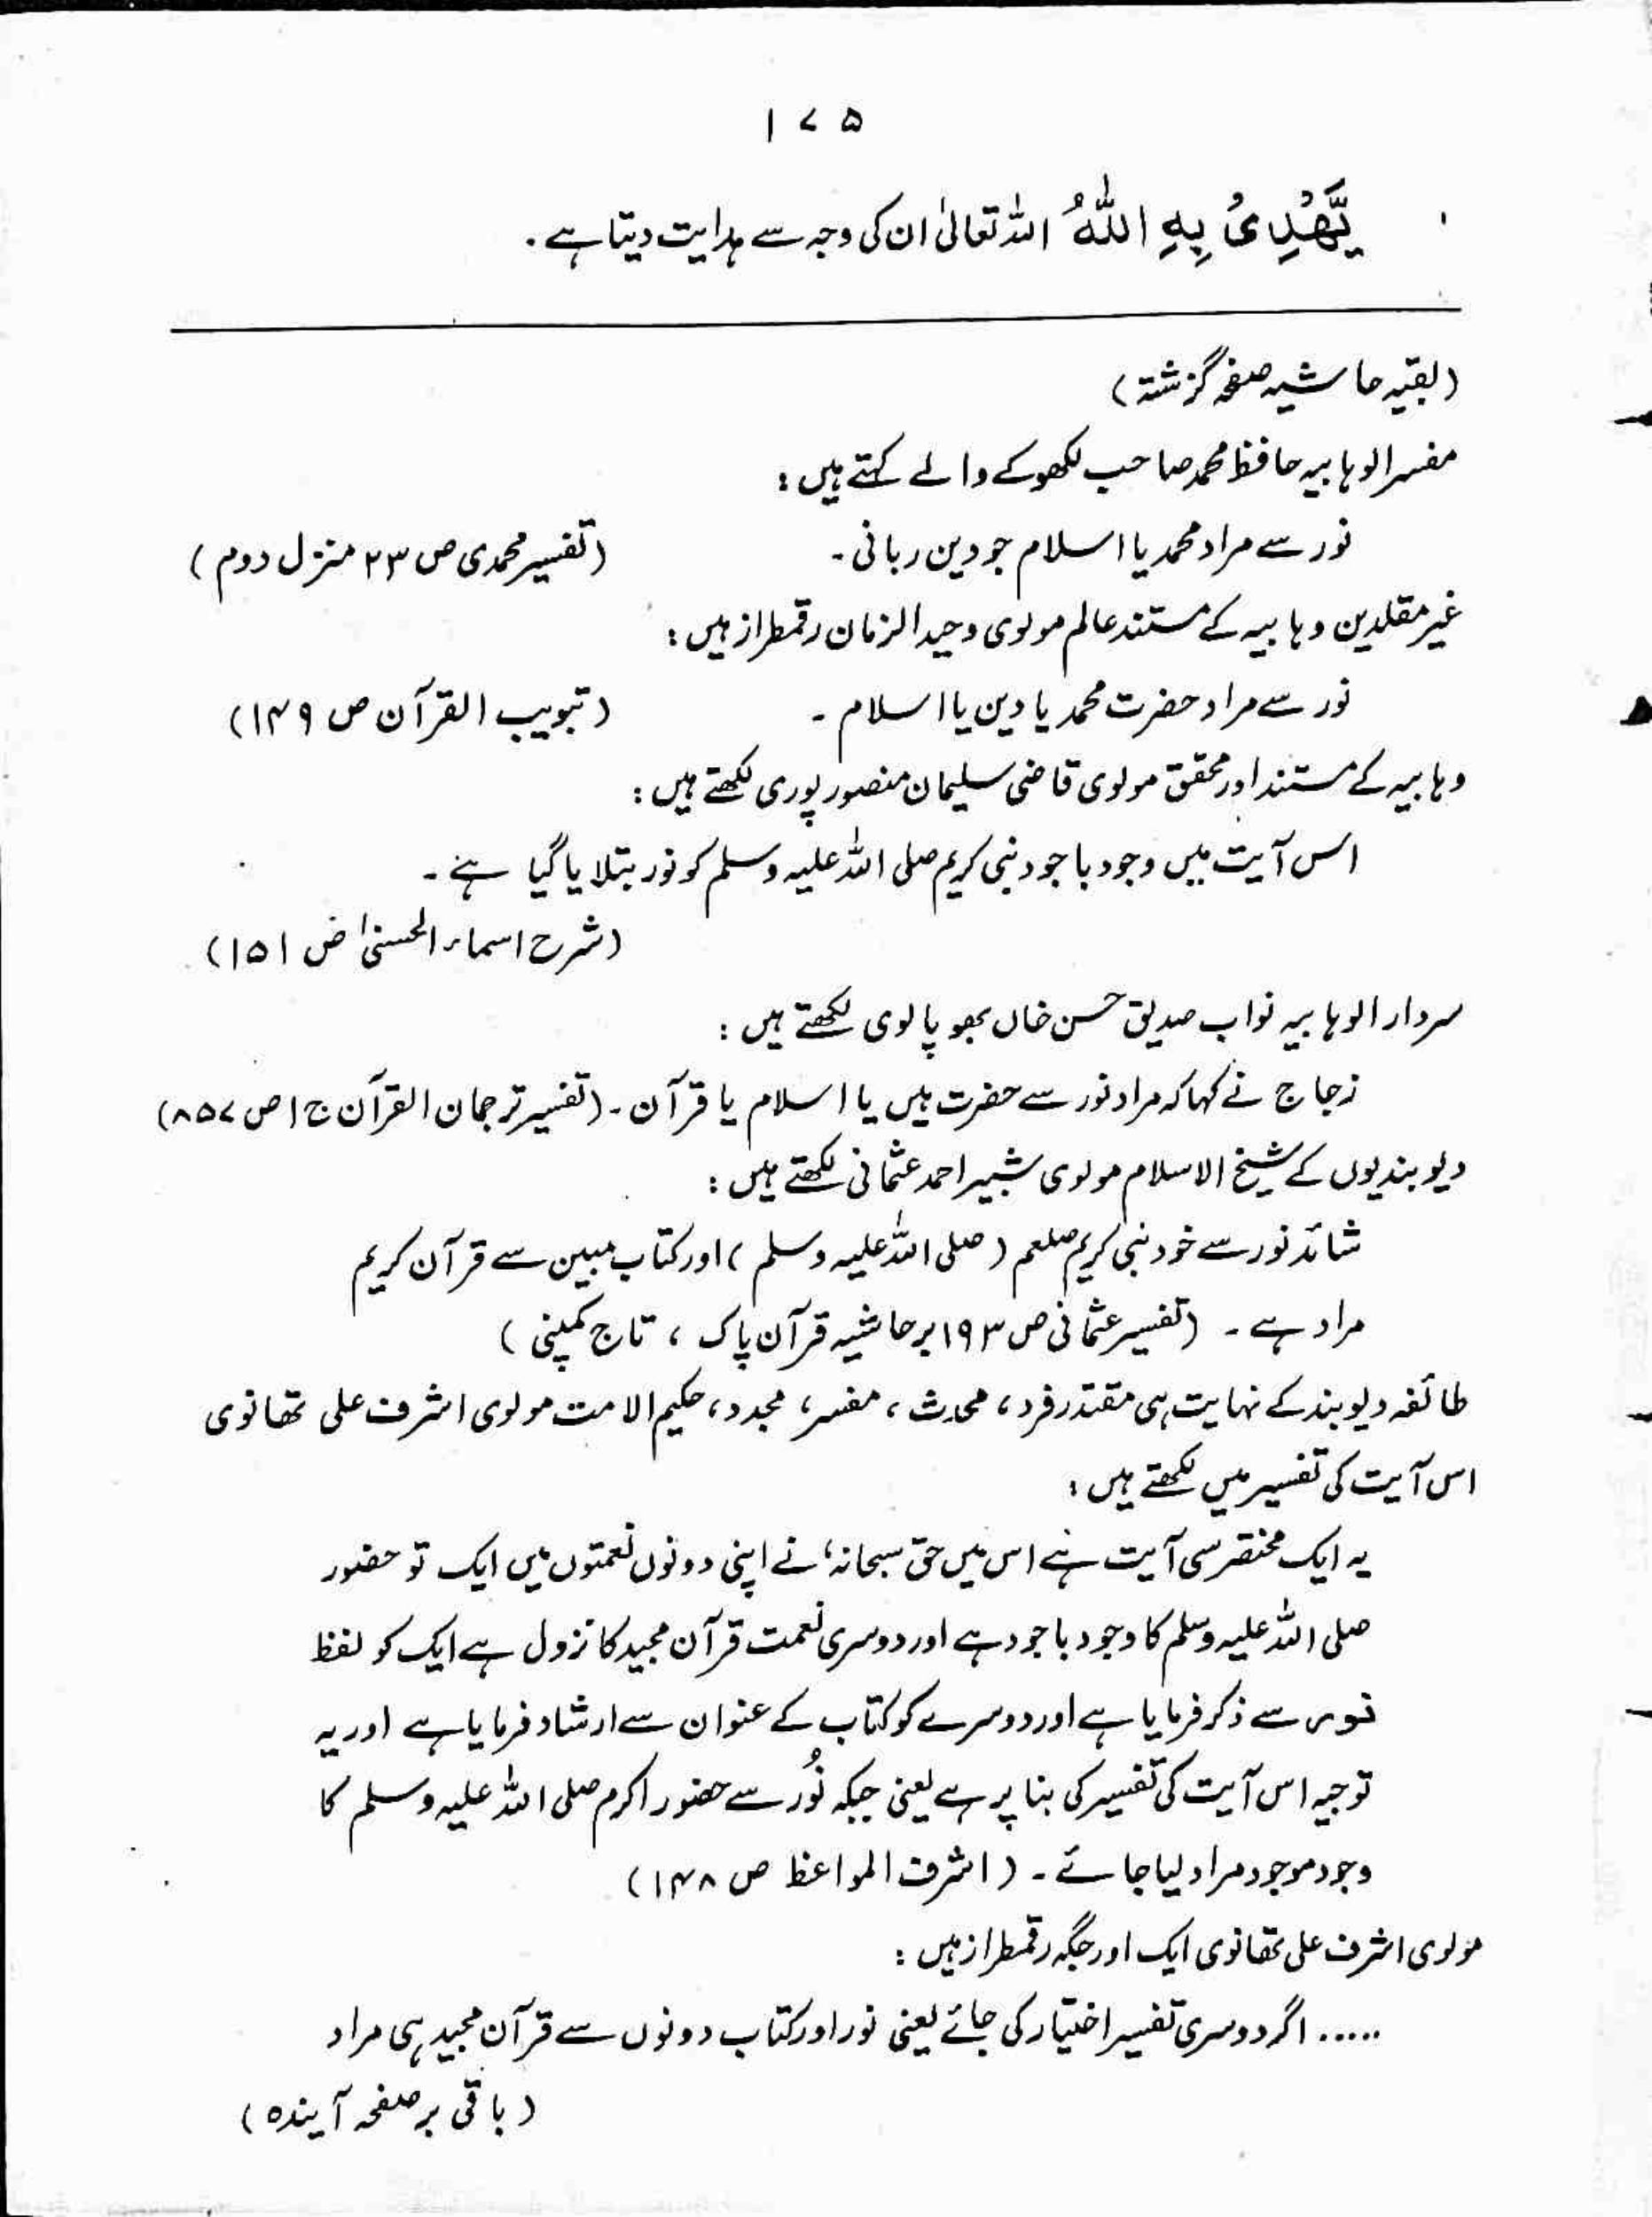 ۱۷۵
یَّهْدِیْ بِهِ اللّٰهُ اللہ تعالیٰ ان کی وجہ سے ہدایت دیتا ہے۔
(بقیہ حاشیہ صفحہ گزشتہ)
مفسر الوہابیہ حافظ محمد صاحب لکھوکے والے کہتے ہیں :
نور سے مراد محمد یا اسلام جو دین ربانی۔ (تفسیر محمدی ص ۲۳ منزل دوم)
غیر مقلدین وہابیہ کے مستند عالم مولوی وحید الزمان رقمطراز ہیں :
نور سے مراد حضرت محمد یا دین یا اسلام ۔ (تبویب القرآن ص ۱۴۹)
وہابیہ کے مستند اور محقق مولوی قاضی سلیمان منصور پوری لکھتے ہیں :
اس آیت میں وجود باجود نبی کریم صلی اللہ علیہ وسلم کو نور بتلایا گیا ہے ۔
(شرح اسماء الحسنیٰ ص ۱۵۱)
سردار الوہابیہ نواب صدیق حسن خاں بھوپالوی لکھتے ہیں :
زجاج نے کہا کہ مراد نور سے حضرت ہیں یا اسلام یا قرآن ۔ (تفسیر ترجمان القرآن ج ۱ ص ۸۵۷)
دیوبندیوں کے شیخ الاسلام مولوی شبیر احمد عثمانی لکھتے ہیں :
شائد نور سے خود نبی کریم صلعم (صلی اللہ علیہ وسلم) اور کتاب مبین سے قرآن کریم
مراد ہے ۔ (تفسیر عثمانی ص ۱۹۳ بر حاشیہ قرآن پاک ، تاج کمپنی)
طائفہ دیوبند کے نہایت ہی مقتدر فرد ، محدث ، مفسر ، مجدد ، حکیم الامت مولوی اشرف علی تھانوی
اس آیت کی تفسیر میں لکھتے ہیں :
یہ ایک مختصر سی آیت ہے اس میں حق سبحانہٗ نے اپنی دونوں نعمتوں میں ایک تو حضور
صلی اللہ علیہ وسلم کا وجود باجود ہے اور دوسری نعمت قرآن مجید کا نزول ہے ایک کو لفظ
نور سے ذکر فرمایا ہے اور دوسرے کو کتاب کے عنوان سے ارشاد فرمایا ہے اور یہ
توجیہ اس آیت کی تفسیر کی بنا پر ہے یعنی جبکہ نُور سے حضور اکرم صلی اللہ علیہ وسلم کا
وجود موجود مراد لیا جائے ۔ (اشرف المواعظ ص ۱۴۸)
مولوی اشرف علی تھانوی ایک اور جگہ رقمطراز ہیں :
..... اگر دوسری تفسیر اختیار کی جائے یعنی نور اور کتاب دونوں سے قرآن مجید ہی مراد
(باقی بر صفحہ آیندہ)